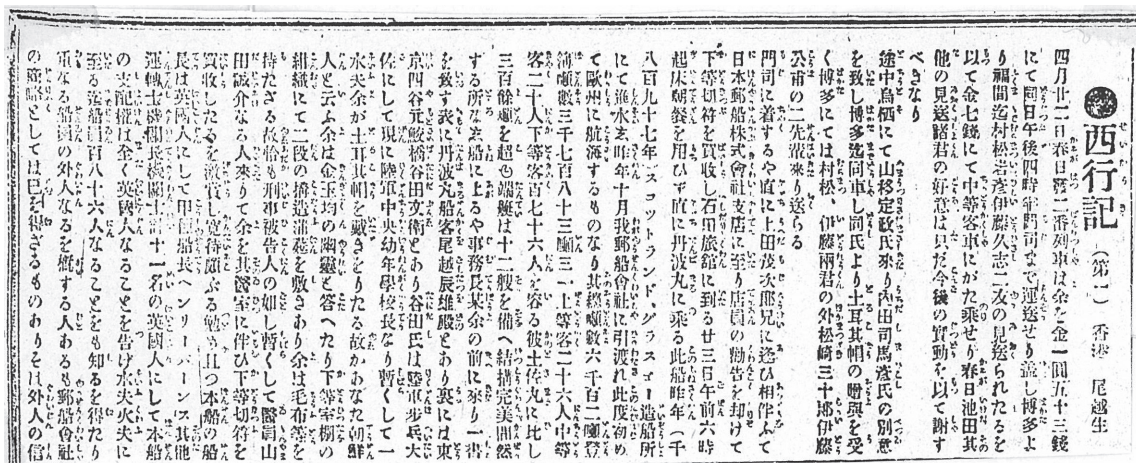 西行記 (第一) 香港 尾越生
四月廿二日春日發二番列車は余を金一圓五十三錢
にて同日午後四時半門司まで運送せり蓋し博多よ
り福間迄村松岩彦伊藤久志二友の見送られたるを
以て金七錢にて中等客車にがた乘せり春日池田其
他の見送諸君の好意は只だ今後の實動を以て謝す
べきなり
途中鳥栖にて山移定政氏來り内田司馬彦氏の別意
を致し博多迄同車し同氏より土耳其帽の贈與を受
く博多にては村松、伊藤兩君の外松崎三十郎伊藤
公甫の二先輩來り送らる
門司に着するや直に上田茂次郎兄に逢ひ相伴ふて
日本郵船株式會社支店に至り店員の勸告を却けて
下等切符を買收し石田旅館に到る廿三日午前六時
起床朝餐を用ひず直に丹波丸に乘る此船昨年(千
八百九十七年)スコットランド、グラスゴー造船所
にて進水し昨年十月我郵船會社に引渡れ此度初め
て歐州に航海するものなり其總噸數六千百二噸登
簿噸數三千七百八十三噸三一上等客二十六人中等
客二十人下等客百七十六人を容る彼土佐丸に比し
三百餘噸を超也端艇は十二艘を備へ結構完美間然
する所なし船に上るや事務長某余の前に來り一書
を致す表に丹波丸船客尾越辰雄殿とあり裏には東
京四谷元鮫橋谷田文衛とあり谷田氏は陸軍歩兵大
佐にして現に陸軍中央幼年學校長なり暫くして一
水夫余が土耳其帽を戴きをりたる故かあなた朝鮮
人と云ふ余は金玉均の幽靈と答へたり下等室棚の
組織にて二段の構造蒲莚を敷きあり余は毛布等を
持たざる故恰も刑事被告人の如し暫くして醫員山
田誠介なる人來りて余を其醫室に伴ひ下等切符を
買收したるを激賞し寛待頗ぶる勉も且つ本船の船
長は英國人にして甲伍船長ヘンリーバーンス其他
運轉士機關長機關士等十一名の英國人にして本船
の支配權は全く英國人なることを告げ水夫火夫に
至る迄船員百八十六人なることをも知るを得たり
重なる船員の外人なるを慨する人あるも郵船會社
の策略としては已を得ざるものありそは外人の信